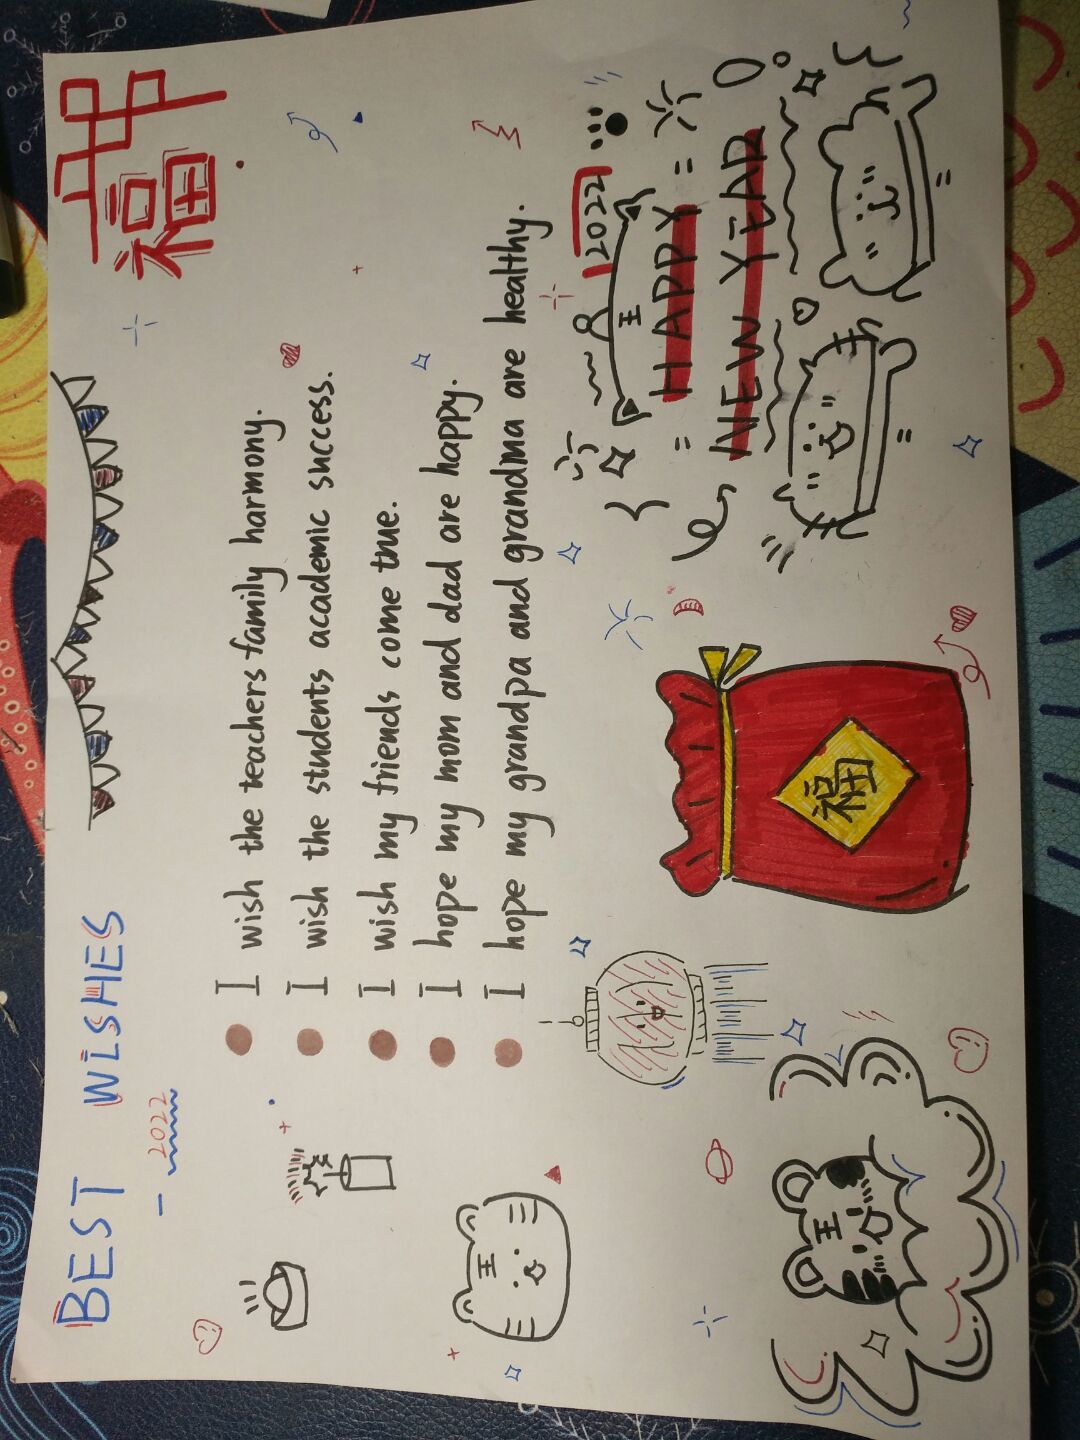 BEST WISHES
- 2022
I wish the teachers family harmony.
I wish the students academic success.
I wish my friends come true.
I hope my mom and dad are happy.
I hope my grandpa and grandma are healthy.
福
王
王
福
2022
王
HAPPY
NEW YEAR